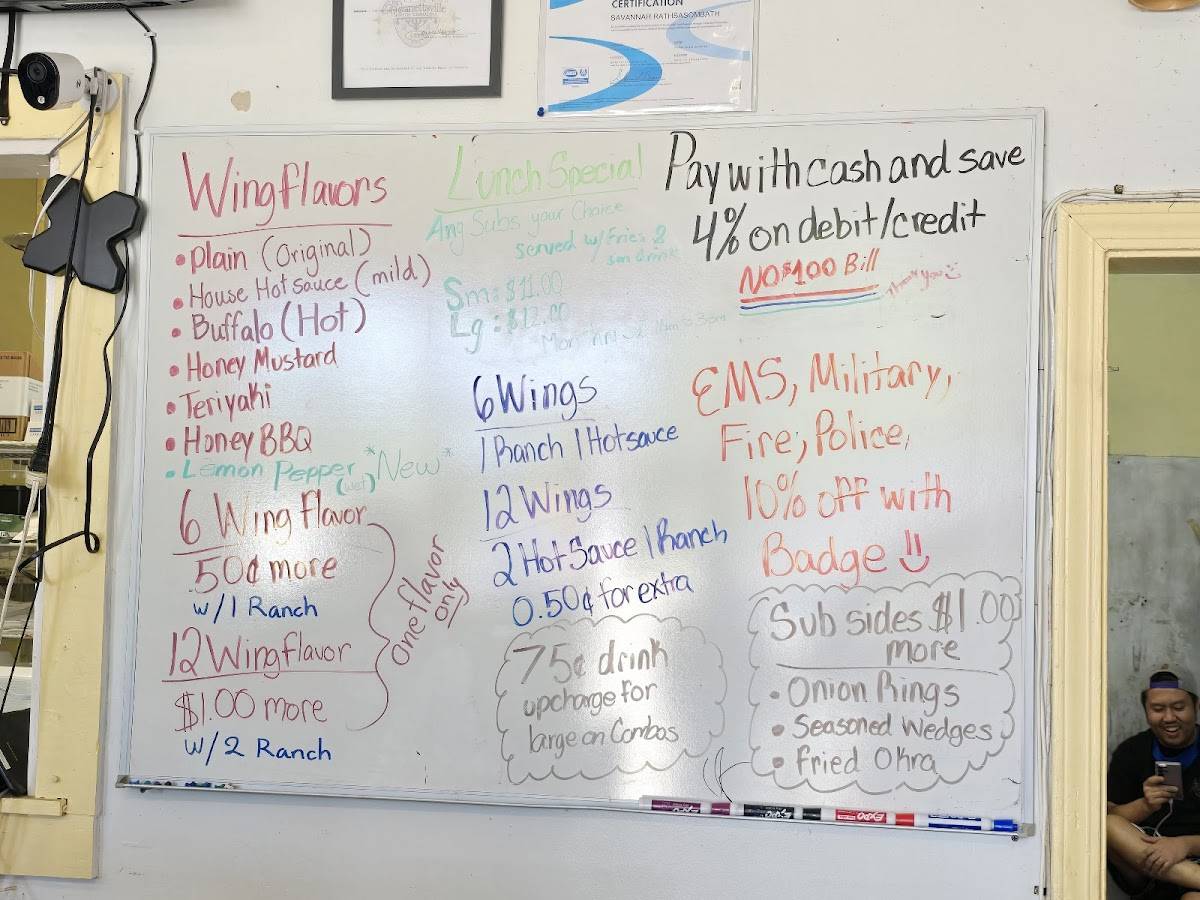 CERTIFICATION
SAVANNAH RATHSASOMBATH
Wing flavors
• Plain (Original)
• House Hot sauce (mild)
• Buffalo (Hot)
• Honey Mustard
• Teriyaki
• Honey BBQ
• Lemon Pepper (wet) *New*
6 Wing flavor
.50¢ more
w/1 Ranch
12 Wing flavor
$1.00 more
w/2 Ranch
One flavor
only
Lunch Special
Any Subs your Choice
served w/Fries &
sm drink
Sm: $11.00
Lg: $12.00
6 Wings
1 Ranch 1 Hot sauce
12 Wings
2 Hot Sauce 1 Ranch
0.50¢ for extra
75¢ drink
upcharge for
large on Combos
Pay with cash and save
4% on debit/credit
NO $100 Bill
Thank you
EMS, Military,
Fire, Police,
10% off with
Badge
Sub sides $1.00
more
• Onion Rings
• Seasoned Wedges
• Fried Okra
EXPO
EXPO
EXPO